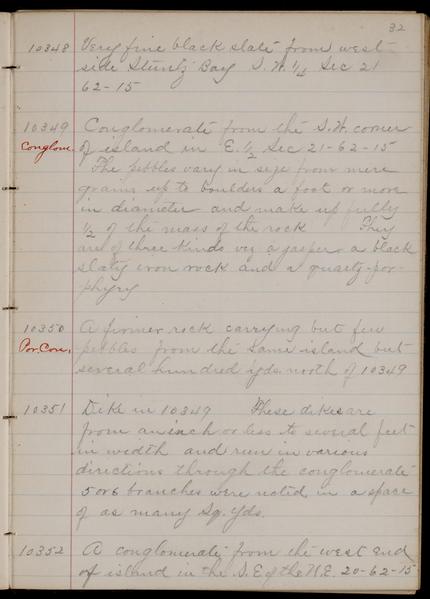 32
10348 Very fine black slate from west
side Stuntz Bay S.W. 1/4 Sec 21
62-15
10349 Conglomerate from the S.W. corner
Conglom. of island in E. 1/2 Sec 21-62-15
The pebbles vary in size from mere
grains up to boulders a foot or more
in diameter and make up fully
1/2 of the mass of the rock They
are of three kinds viz a jasper a black
slaty iron rock and a quartz-por-
phyry
10350 A firmer rock carrying but few
Por. Con. pebbles from the same island but
several hundred yds. north of 10349
10351 Dike in 10349 These dikes are
from an inch or less to several feet
in width and run in various
directions through the conglomerate
5 or 6 branches were noted in a space
of as many Sq. Yds.
10352 A conglomerate from the west end
of island in the S.E of the N.E. 20-62-15